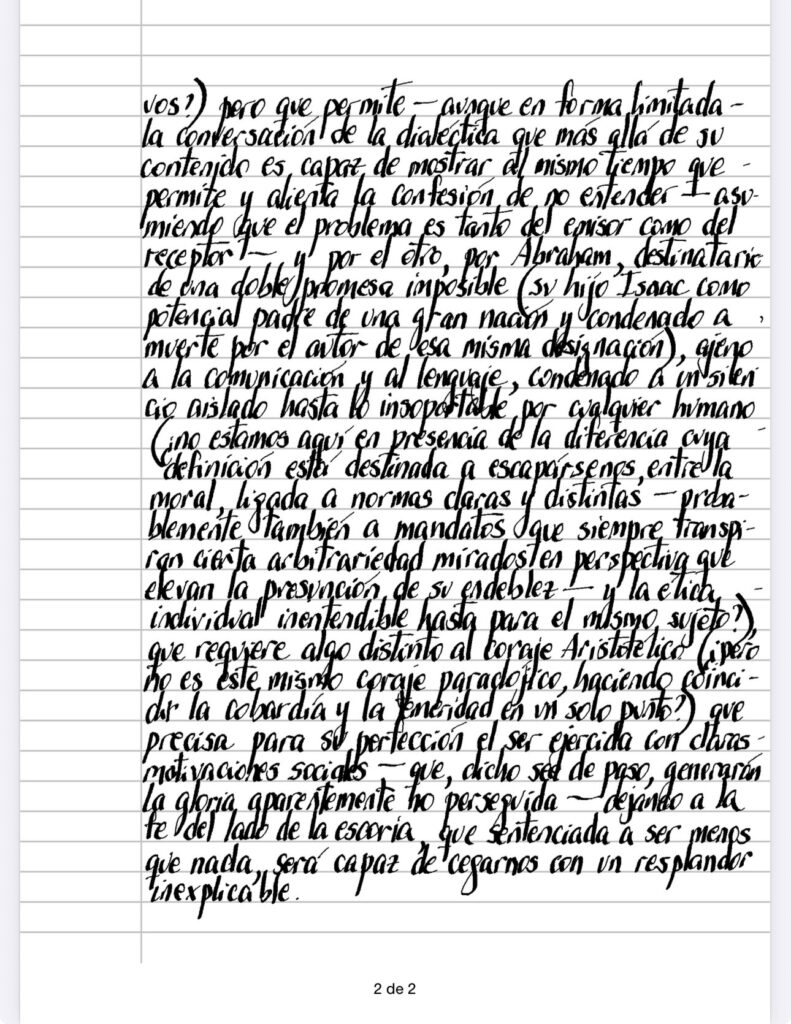 vos?) pero que permite — aunque en forma limitada —
la conversación de la dialéctica que más allá de su
contenido es capaz de mostrar al mismo tiempo que
permite y alienta la confesión de no entender — asu-
miendo que el problema es tanto del emisor como del
receptor — y por el otro, por Abraham, destinatario
de una doble promesa imposible (su hijo Isaac como
potencial padre de una gran nación y condenado a
muerte por el autor de esa misma designación), ajeno
a la comunicación y al lenguaje, condenado a un silen
cio aislado hasta lo insoportable por cualquier humano
(¿no estamos aquí en presencia de la diferencia cuya
definición está destinada a escapársenos, entre la
moral, ligada a normas claras y distintas — proba-
blemente también a mandatos que siempre transpi-
ran cierta arbitrariedad mirados en perspectiva que
elevan la presunción de su endeblez — y la ética
individual inentendible hasta para el mismo sujeto?),
que requiere algo distinto al coraje Aristotélico (¿pero
no es este mismo coraje paradójico, haciendo coinci-
dir la cobardía y la temeridad en un solo punto?) que
precisa para su perfección el ser ejercida con claras
motivaciones sociales — que, dicho sea de paso, generarán
la gloria aparentemente no perseguida — dejando a la
fe del lado de la escoria, que sentenciada a ser menos
que nada, será capaz de cegarnos con un resplandor
inexplicable.
2 de 2